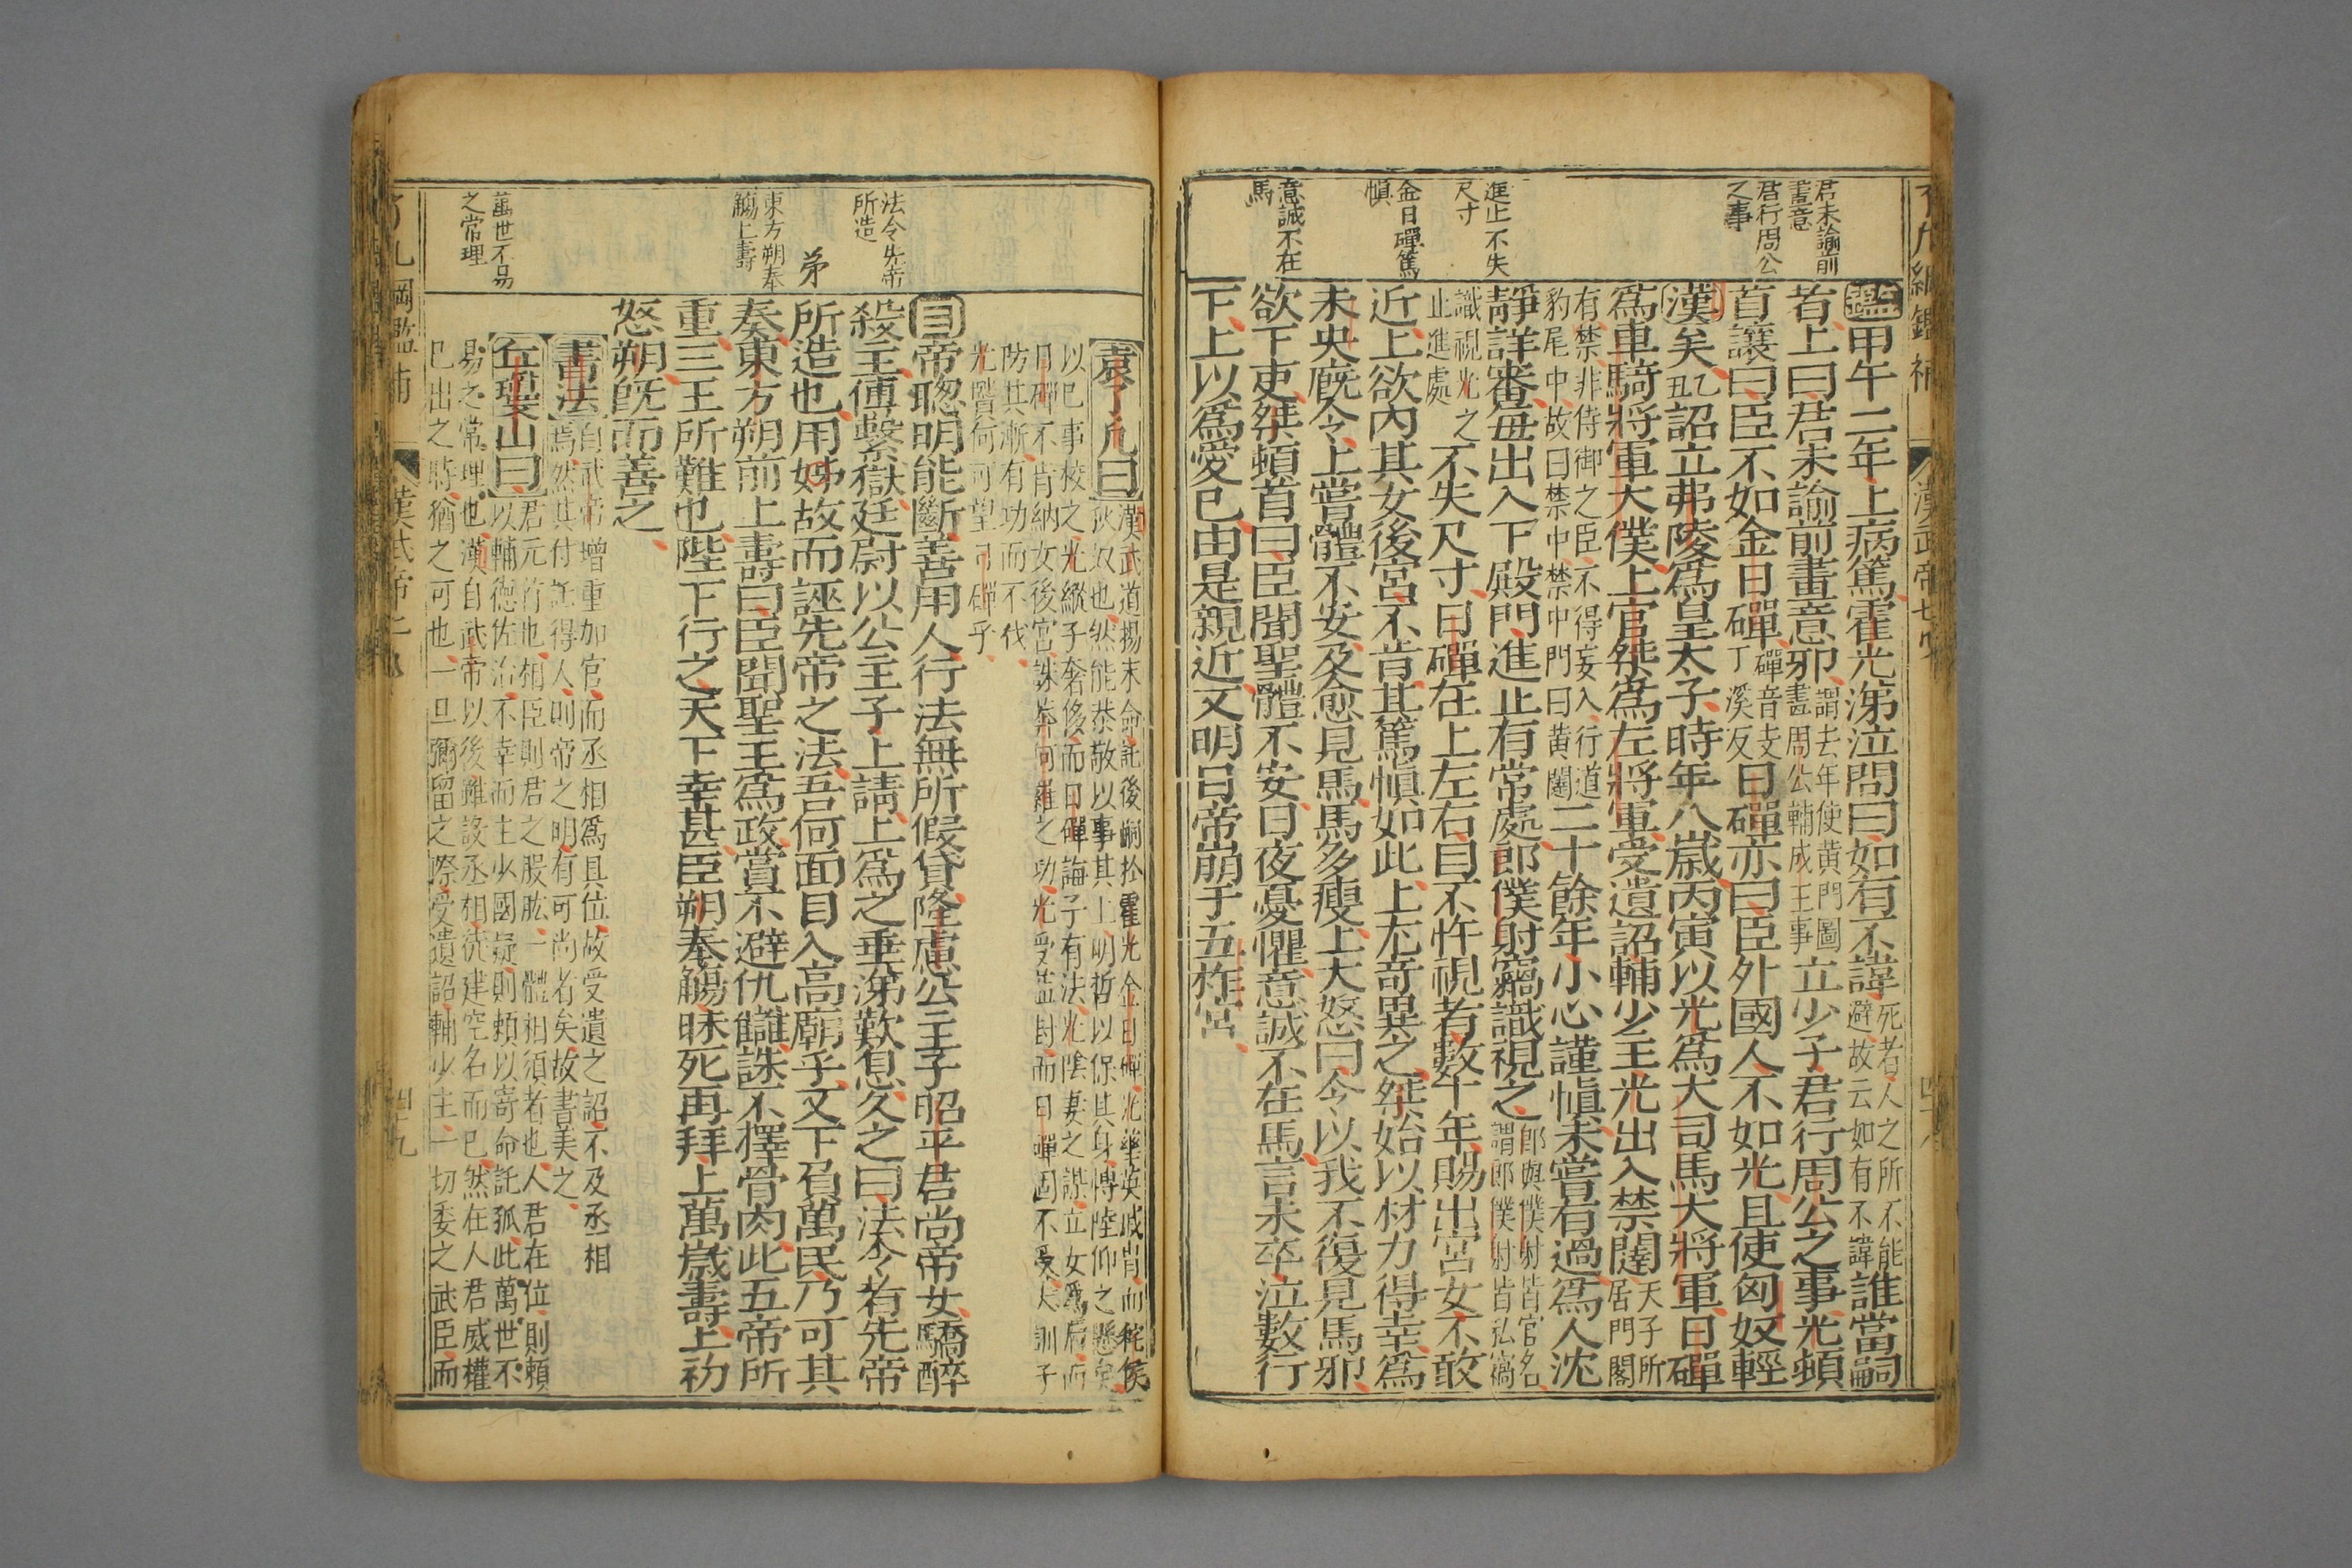 君未諭前
畫意
君行周公
之事
進止不失
尺寸
金日磾篤
慎
意誠不在
馬
鑑甲午二年上病篤霍光涕泣問曰如有不諱死者人之所不能避故云如有不諱誰當嗣
者上曰君未諭前畫意邪謂去年使黃門圖畫周公輔成王事立少子君行周公之事光頓
首讓曰臣不如金日磾磾音丁溪反日磾亦曰臣外國人不如光且使匈奴輕
漢矣乙丑詔立弗陵為皇太子時年八歲丙寅以光為大司馬大將軍日磾
為車騎將軍大僕上官桀為左將軍受遺詔輔少主光出入禁闥天子所居門閣
有禁非侍御之臣不得妄入行道豹尾中故曰禁中禁中門曰黃闥二十餘年小心謹慎未嘗有過為人沈
靜詳審毎出入下殿門進止有常處郎僕射竊識視之郎與僕射皆官名謂郎僕射皆私竊
識視光之止進處不失尺寸日磾在上左右目不忤視者數十年賜出宮女不敢
近上欲內其女後宮不肯其篤慎如此上尤竒異之桀始以材力得幸為
未央廐令上嘗體不安及愈見馬馬多瘦上大怒曰令以我不復見馬邪
欲下吏桀頓首曰臣聞聖體不安日夜憂懼意誠不在馬言未卒泣數行
下上以為愛已由是親近又明日帝崩于五柞宮
法令先帝
所造
弟
東方朔奉
觴上壽
萬世不易
之常理
袁了凡曰漢武道揚末命託後嗣於霍光金日磾光華英城肖而
以巳事校之光縱子奢侈而日磾誨子有法光陰妻之謀立女為后而
日磾不肯納女後宮誅莽何羅之功光受葢封而日磾固不受夫訓子
防其漸有功而不伐
光髊何可望日磾乎
目帝聰明能斷善用人行法無所假貸隆慮公主子昭平君尚帝女驕醉
殺主傅繫獄廷尉以公主子上請上為之垂涕歎息久之曰法令者先帝
所造也用姊故而誣先帝之法吾何面目入高廟乎又下負萬民乃可其
奏東方朔前上壽曰臣聞聖王為政賞不避仇讎誅不擇骨肉此五帝所
重三王所難也陛下行之天下幸甚臣朔奉觴昧死再拜上萬歲壽上初
怒朔旣而善之
書法自武帝增重加官而丞相為具位故受遺之詔不及丞相
焉然其付託得人則帝之明有可尚者矣故書美之
丘瓊山曰君元首也相臣則君之股肱一體相須者也人君在位則賴
以輔德佐治不幸而主少國疑則賴以寄命託孤此萬世不
易之常理也漢自武帝以後雖設丞相徒建空名而已然在人君威權
已出之時猶之可也一旦彌留之際受遺詔輔少主一切委之武臣而